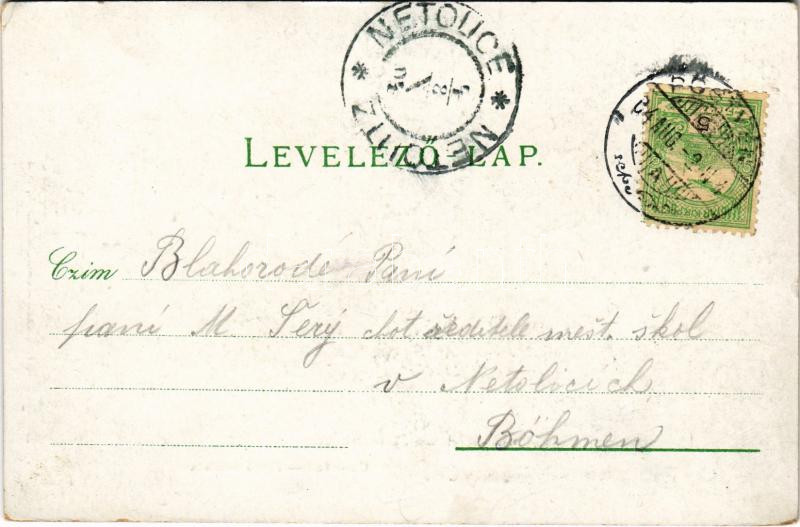 NETOLICE * NETOLITZ *
LEVELEZŐ LAP.
Czim Blahorodé Paní
paní M. Šerý chot ředitele mešt. škol
v Netolicích
Böhmen